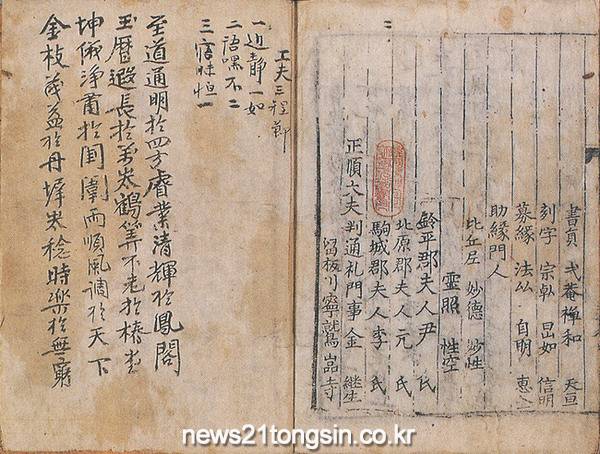 書員 弍菴禪和 天亘
刻字 宗倬 旵如 信明
募緣 法㕕 自明 惠
助緣門人
比丘尼 妙德 妙性
靈照 性空
鈴平郡夫人尹 氏
北原郡夫人元 氏
駒城郡夫人李 氏
正順大夫判通礼門事金 継生
留板川寧鷲嵓寺
工夫三程節
一 静一如
二 語嘿不二
三 寤昧恒一
至道通明於四方睿業清輝於鳳閣
玉曆遐長於 鶴筭不老於椿
坤儀淨肅於閨闈雨順風調於天下
金枝茂益於丹墀 稔時樂於無窮
news21tongsin.co.kr